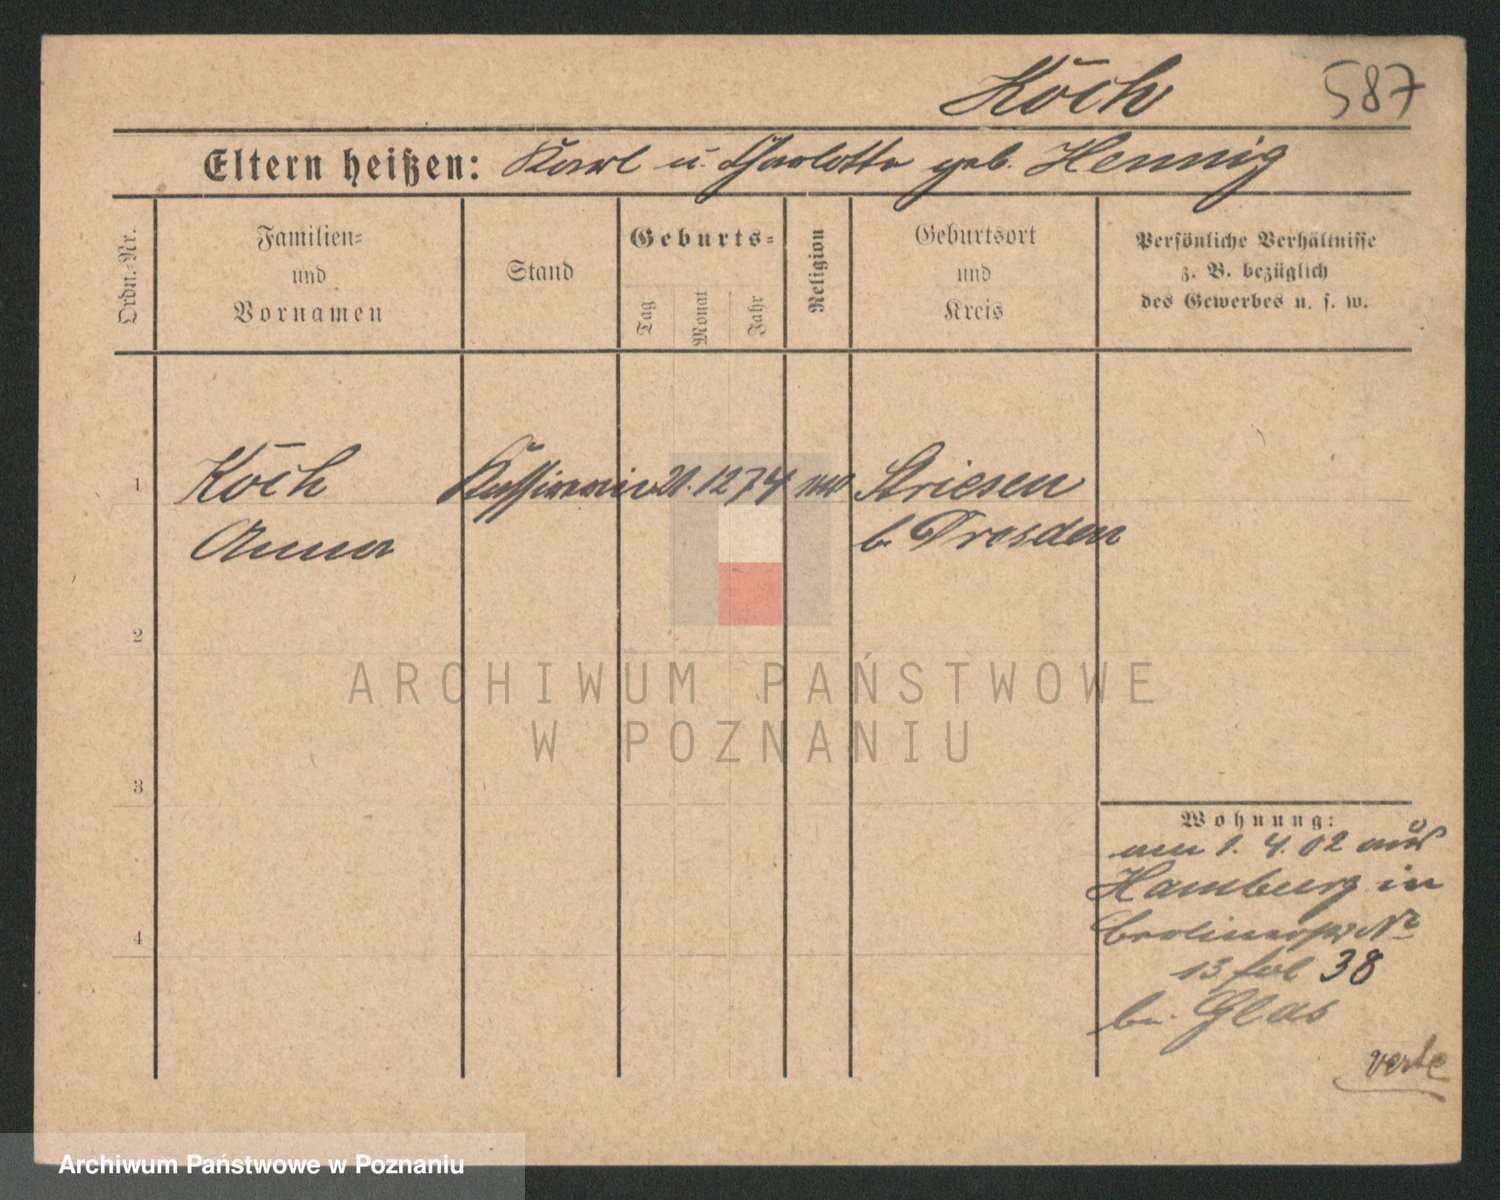 Koch 587
Eltern heißen: Karl u. Charlotte geb. Hennig
Ordn.-Nr.
Familien-
und
Vornamen
Stand
Geburts-
Tag
Monat
Jahr
Religion
Geburtsort
und
Kreis
Persönliche Verhältnisse
z. B. bezüglich
des Gewerbes u. s. w.
1 Koch Kassiererin 21. 12 74 Striesen
Anna b. Dresden
2
ARCHIWUM PAŃSTWOWE
W POZNANIU
3
Wohnung:
am 1. 4. 02 aus
Hamburg in
4
Berlinerstr No
13 fol 38
bei Glas
verte
Archiwum Państwowe w Poznaniu